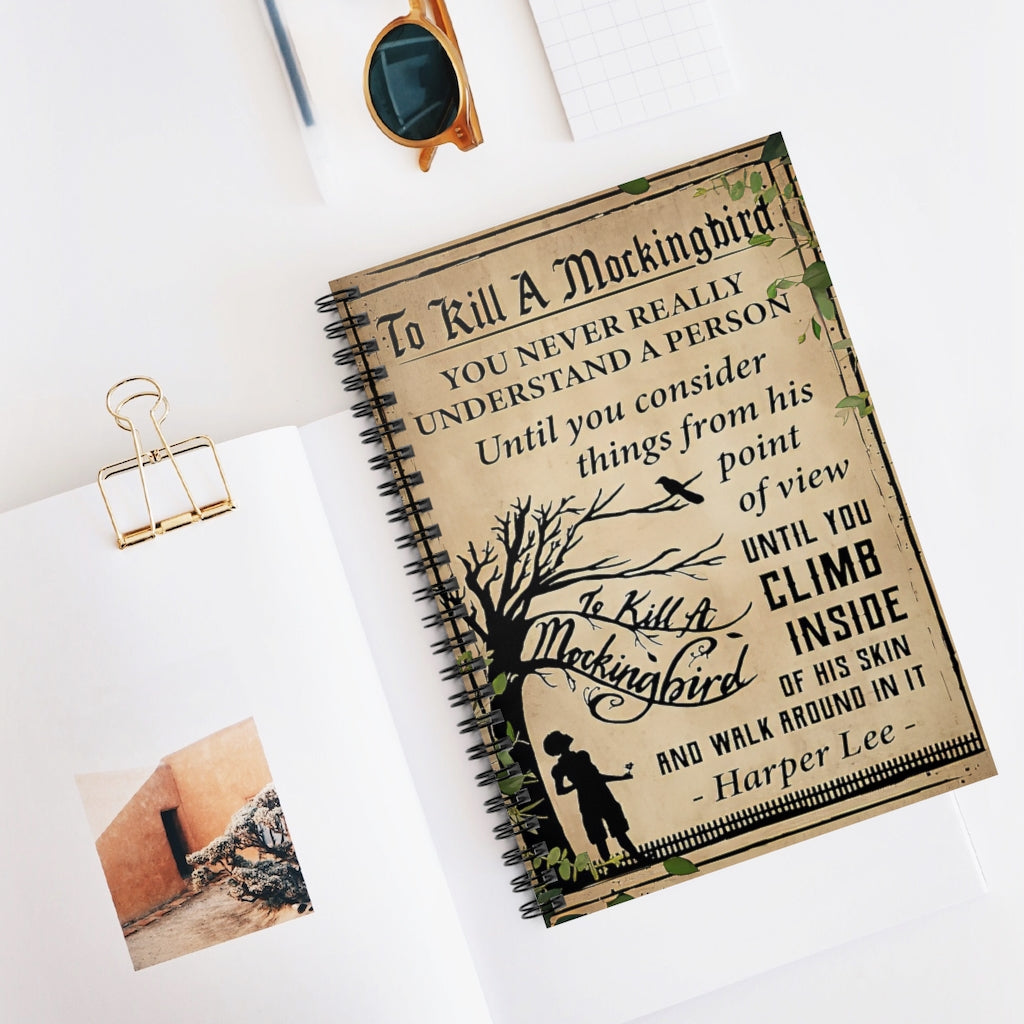 To Kill A Mockingbird
YOU NEVER REALLY
UNDERSTAND A PERSON
Until you consider
things from his
point
of view
UNTIL YOU
CLIMB
INSIDE
OF HIS SKIN
AND WALK AROUND IN IT
- Harper Lee -
To Kill A
Mockingbird